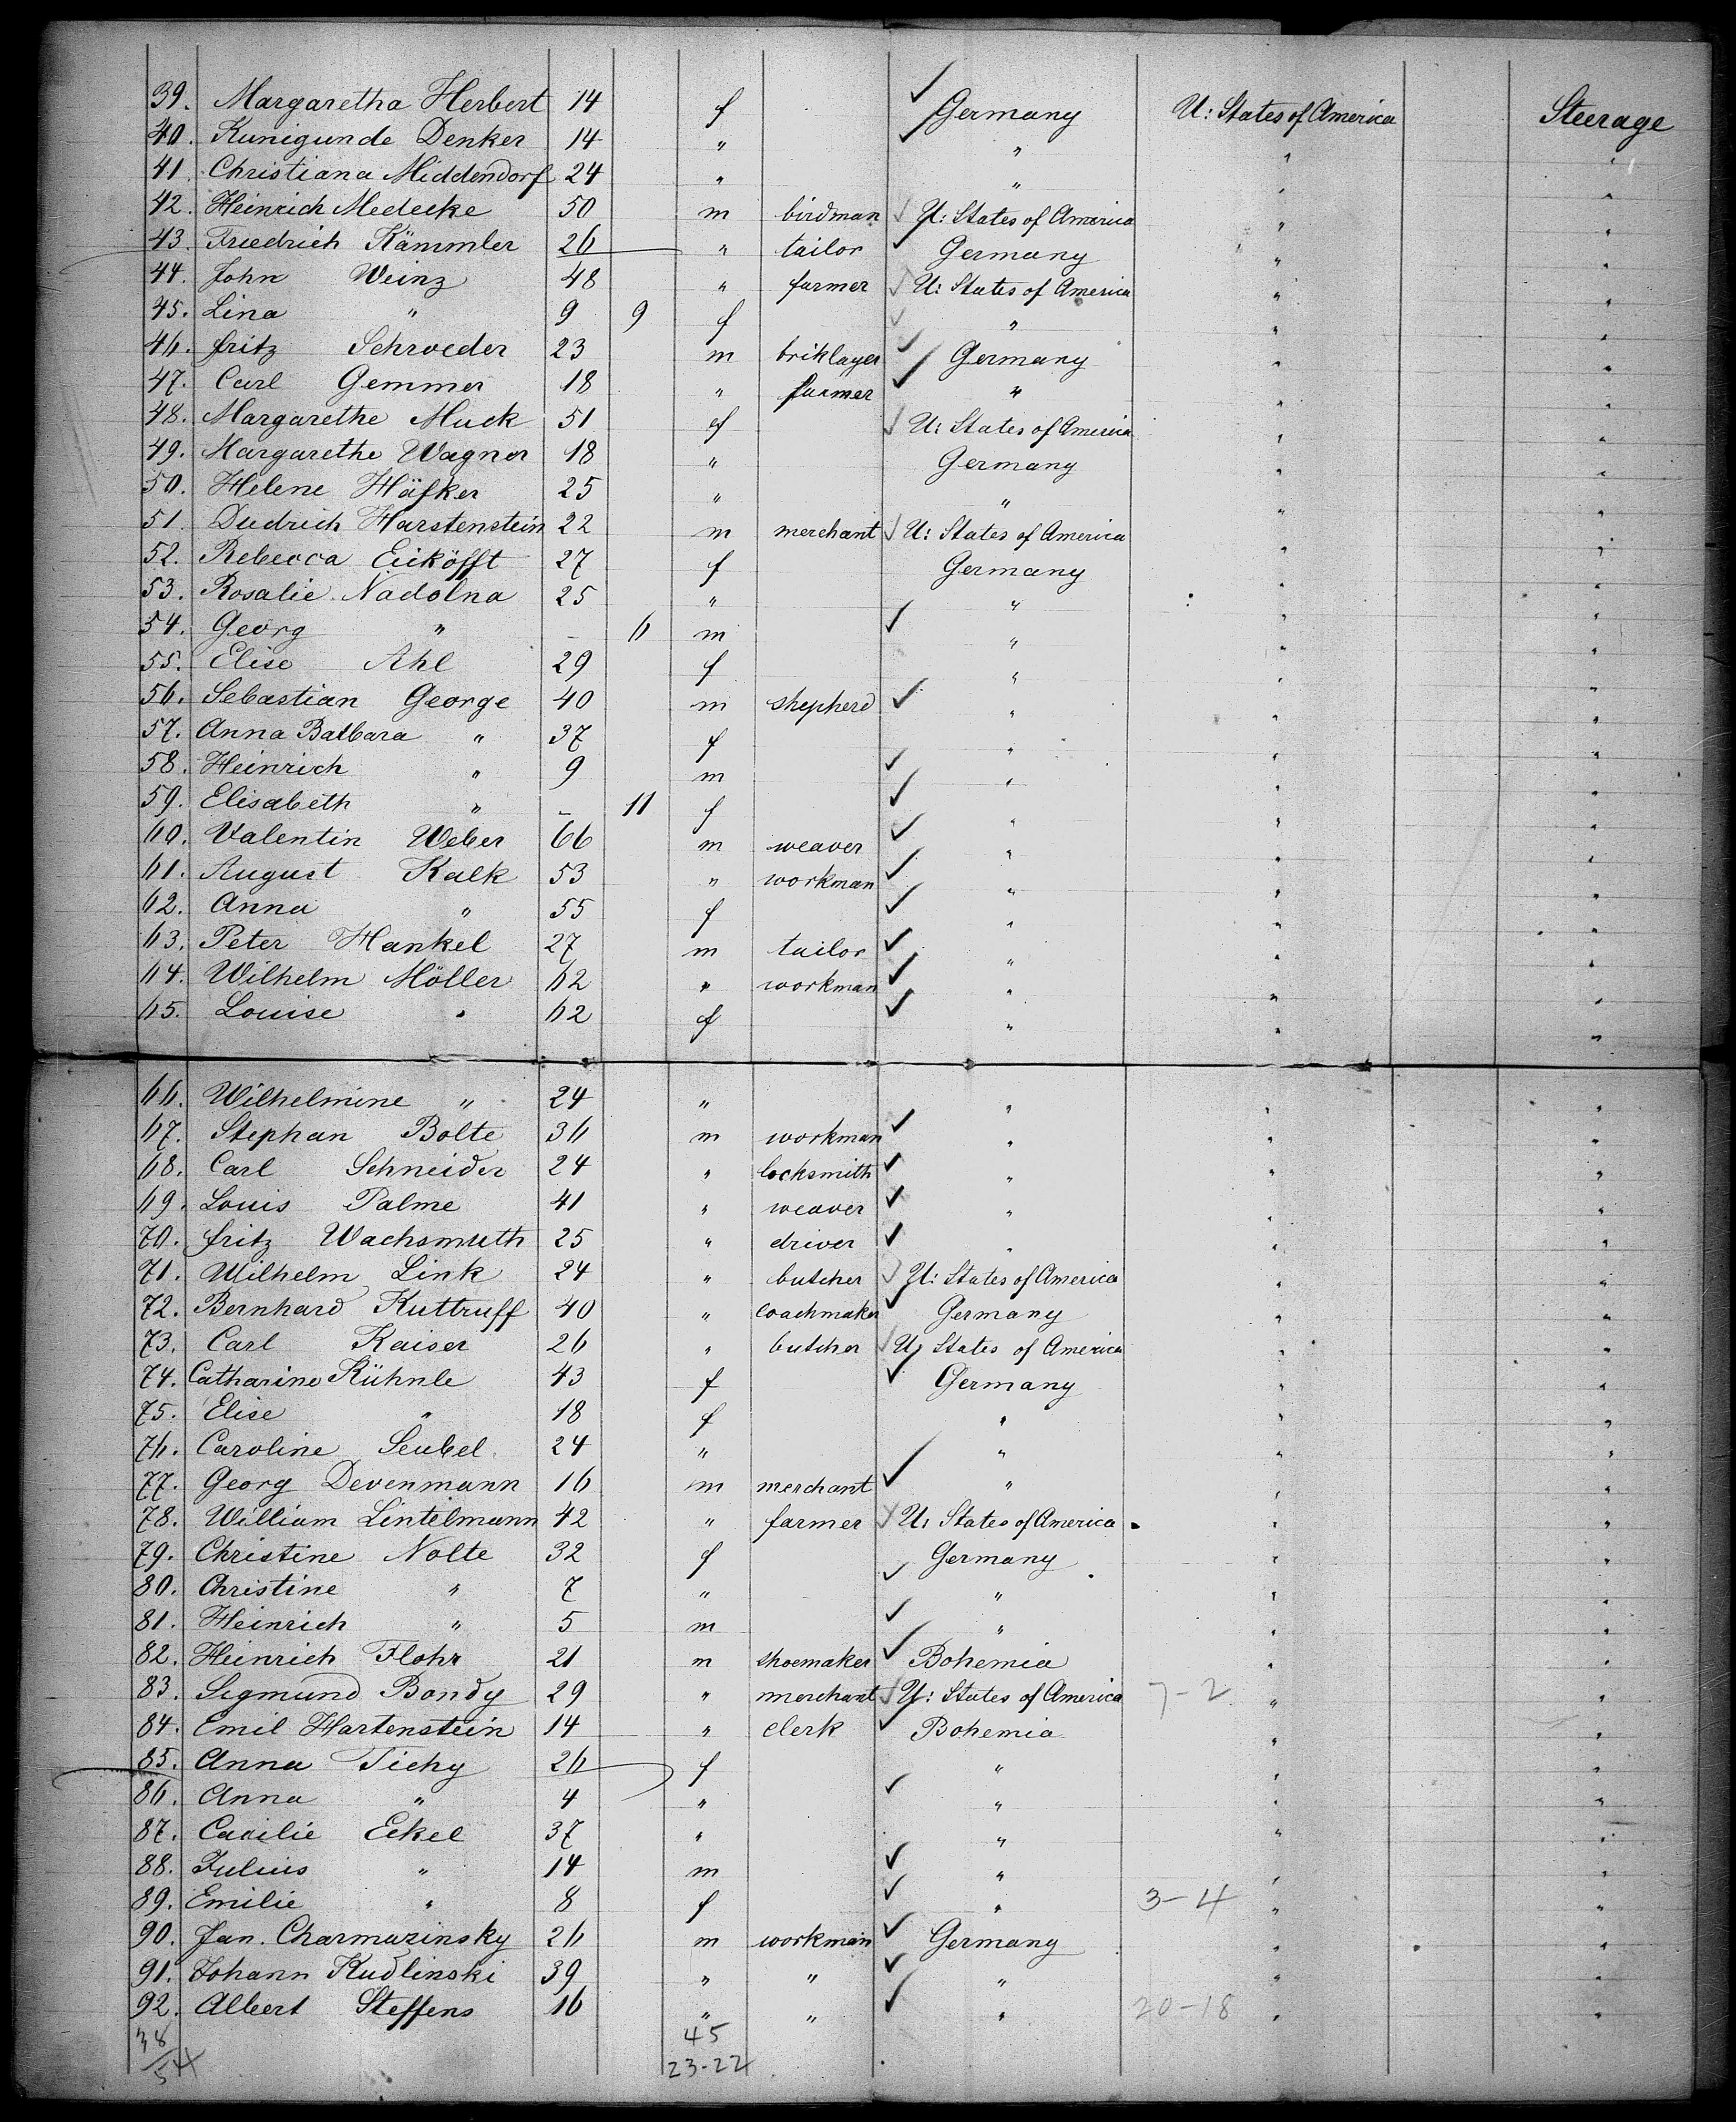 39. Margaretha Herbert 14 f Germany U: States of America Steerage
40. Kunigunde Denker 14 " " " "
41. Christiana Middendorf 24 " " " "
42. Heinrich Medecke 50 m birdman U: States of America " "
43. Friedrich Kämmler 26 " tailor Germany " "
44. John Weinz 48 " farmer U: States of America " "
45. Lina " 9 9 f " " "
46. Fritz Schroeder 23 m briklayer Germany " "
47. Carl Gemmer 18 " farmer " " "
48. Margarethe Muck 51 f U: States of America " "
49. Margarethe Wagner 18 " Germany " "
50. Helene Häfker 25 " " " "
51. Diedrich Harstenstein 22 m merchant U: States of America " "
52. Rebecca Eiköfft 27 f Germany " "
53. Rosalie Nadolna 25 " " " "
54. Georg " - 6 m " " "
55. Elise Ahl 29 f " " "
56. Sebastian George 40 m shepherd " " "
57. Anna Balbara " 37 f " " "
58. Heinrich " 9 m " " "
59. Elisabeth " - 11 f " " "
60. Valentin Weber 66 m weaver " " "
61. August Kalk 53 " workman " " "
62. Anna " 55 f " " "
63. Peter Hankel 27 m tailor " " "
64. Wilhelm Möller 62 " workman " " "
65. Louise " 62 f " " "
66. Wilhelmine " 24 " " " "
67. Stephan Bolte 36 m workman " " "
68. Carl Schneider 24 " locksmith " " "
69. Louis Palme 41 " weaver " " "
70. Fritz Wachsmuth 25 " driver " " "
71. Wilhelm Link 24 " butcher U: States of America " "
72. Bernhard Kuttruff 40 " coachmaker Germany " "
73. Carl Kaiser 26 " butcher U: States of America " "
74. Catharine Kühnle 43 f Germany " "
75. Elise " 18 f " " "
76. Caroline Seubel 24 " " " "
77. Georg Devenmann 16 m merchant " " "
78. William Lintelmann 42 " farmer U: States of America " "
79. Christine Nolte 32 f Germany " "
80. Christine " 7 " " " "
81. Heinrich " 5 m " " "
82. Heinrich Flohr 21 m shoemaker Bohemia " "
83. Sigmund Bondy 29 " merchant U: States of America 7-2 " "
84. Emil Hartenstein 14 " clerk Bohemia " "
85. Anna Tichy 26 f " " "
86. Anna " 4 " " " "
87. Cacilie Eckel 37 " " " "
88. Julius " 14 m " " "
89. Emilie " 8 f " 3-4 " "
90. Jan. Charmazinsky 26 m workman Germany " "
91. Johann Kudlinski 39 " " " " "
92. Albert Steffens 16 " " " 20-18 " "
38 45
54 23-22